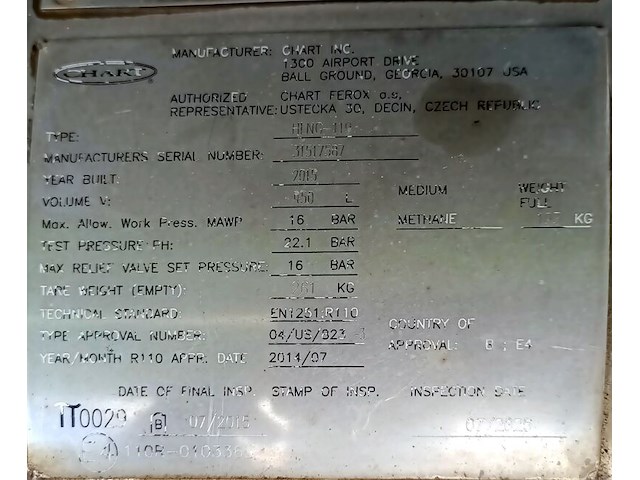 CHART
MANUFACTURER: CHART INC.
1300 AIRPORT DRIVE
BALL GROUND, GEORGIA, 30107 USA
AUTHORIZED REPRESENTATIVE: CHART FEROX a.s,
USTECKA 30, DECIN, CZECH REPUBLIC
TYPE: HLNG-119
MANUFACTURERS SERIAL NUMBER:
YEAR BUILT: 2015
VOLUME V: 450 L
MEDIUM WEIGHT FULL
Max. Allow. Work Press. MAWP 16 BAR
METHANE KG
TEST PRESSURE PH: 22.1 BAR
MAX RELIEF VALVE SET PRESSURE: 16 BAR
TARE WEIGHT (EMPTY): KG
TECHNICAL STANDARD: EN1251,R110
TYPE APPROVAL NUMBER: 04/US/823
COUNTRY OF APPROVAL: 8 : E4
YEAR/MONTH R110 APPR. DATE 2014/07
DATE OF FINAL INSP. STAMP OF INSP. INSPECTION DATE
TT0029 B 07/2015
110R-